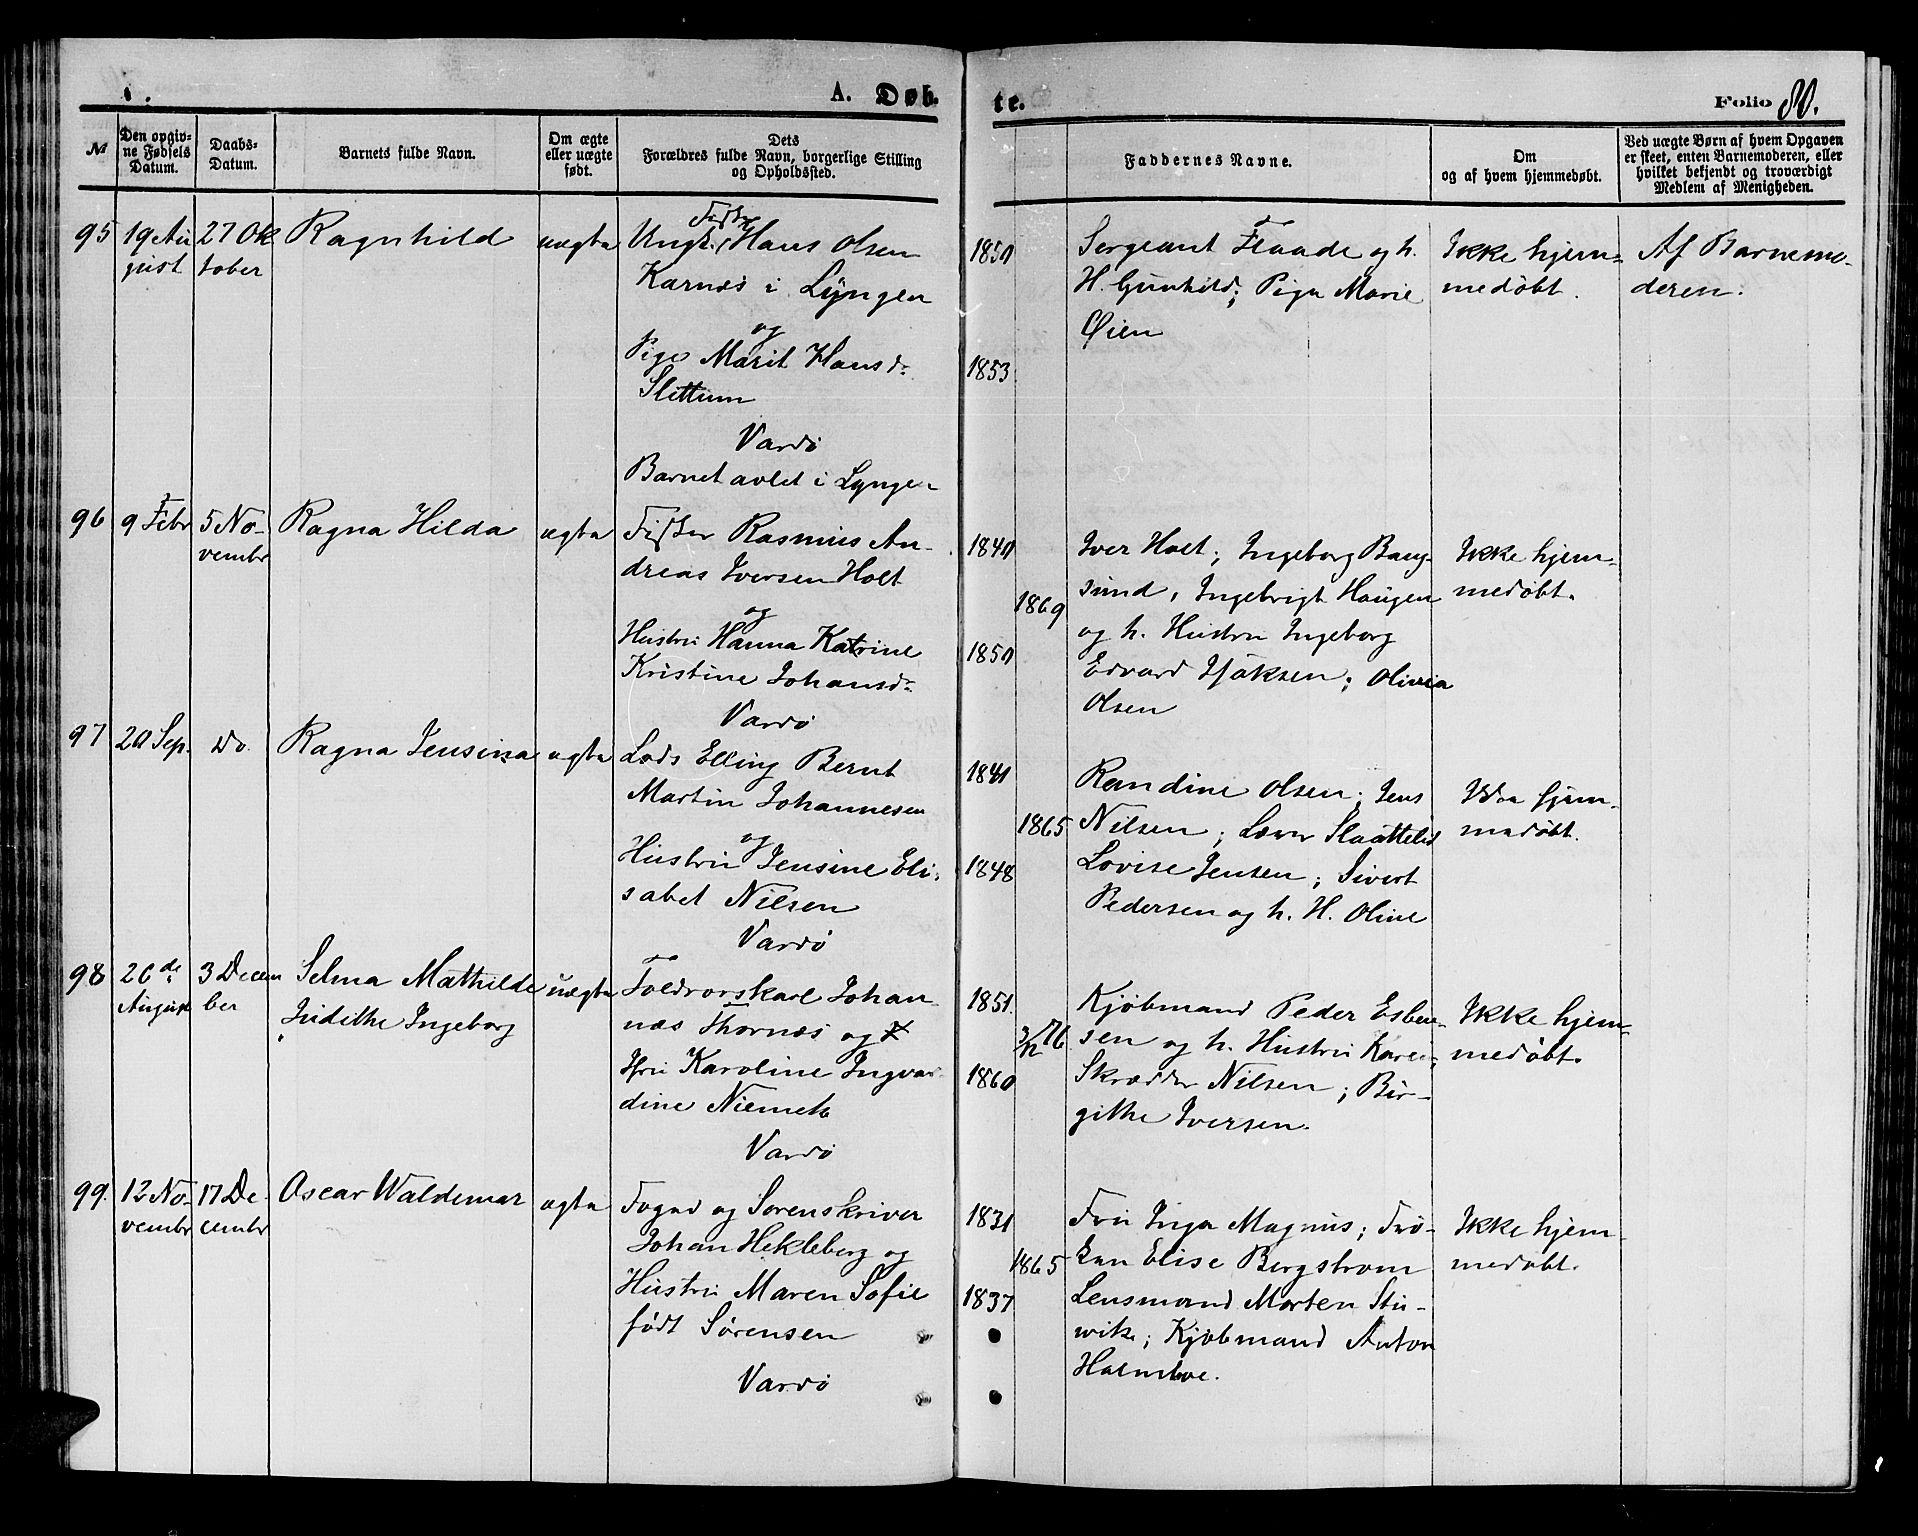 A. Døb-
te.
Folio 80.
№
Den opgiv-
ne Fødsels
Datum.
Daabs-
Datum.
Barnets fulde Navn.
Om ægte
eller uægte
født.
Dets
Forældres fulde Navn, borgerlige Stilling
og Opholdssted.
Faddernes Navne.
Om
og af hvem hjemmedøbt.
Ved uægte Børn af hvem Opgaven
er skeet, enten Barnemoderen, eller
hvilket bekjendt og troværdigt
Medlem af Menigheden.
95
19 Au
gust
27 Ok
tober
Ragnhild
uægte
Fisker
Ungk. Hans Olsen
Karnes i Lyngen
og
Pige Marit Hansd.
Slettum
Vardø
Barnet avlet i Lyngen
1850
1853
Sergeant Flaade og h.
H. Gunhild; Pige Marie
Øien
Ikke hjem-
medøbt.
Af Barnemo-
deren.
96
9 Febr
5 No-
vembr
Ragna Hilda
ægte
Fisker Rasmus An-
dreas Iversen Holt
og
Hustru Hanna Katrine
Kristine Johansd.
Vardø
1840
1869
1850
Iver Holt; Ingeborg Baug-
sund, Ingebrigt Haugen
og h. Hustru Ingeborg
Edvard Isaksen; Olivia
Olsen
Ikke hjem-
medøbt.
97
20 Sep.
Do.
Ragna Jensina
ægte
Lods Elling Bernt
Martin Johannesen
og
Hustru Jensine Eli-
sabet Nilsen
Vardø
1841
1865
1848
Randine Olsen; Jens
Nilsen; Lærer Slaattelid
Lovise Jensen; Sivert
Pedersen og h. H. Oline
Ikke hjem-
medøbt.
98
26de
August
3 Decem
ber
Selma Mathilde
Judithe Ingeborg
uægte
Toldrorskarl Johan-
nes Thornæs og
Karoline Ingvar-
dine
Vardø
1851.
3/12 76
1860
Kjøbmand Peder Esben-
sen og h. Hustru Karen;
Skrædder Nilsen; Bir-
githe Iversen.
Ikke hjem-
medøbt.
99.
12 No-
vembr
17 De-
cembr
Oscar Waldemar
ægte
Foged og Sorenskriver
Johan Hekleberg og
Hustru Maren Sofie
født Sørensen
Vardø
1831
1865
1837
Fru Inga Magnus; Frø-
ken Elise Bergstrøm
Lensmand Morten Stu-
wik; Kjøbmand Anton
Holmboe.
Ikke hjem-
medøbt.